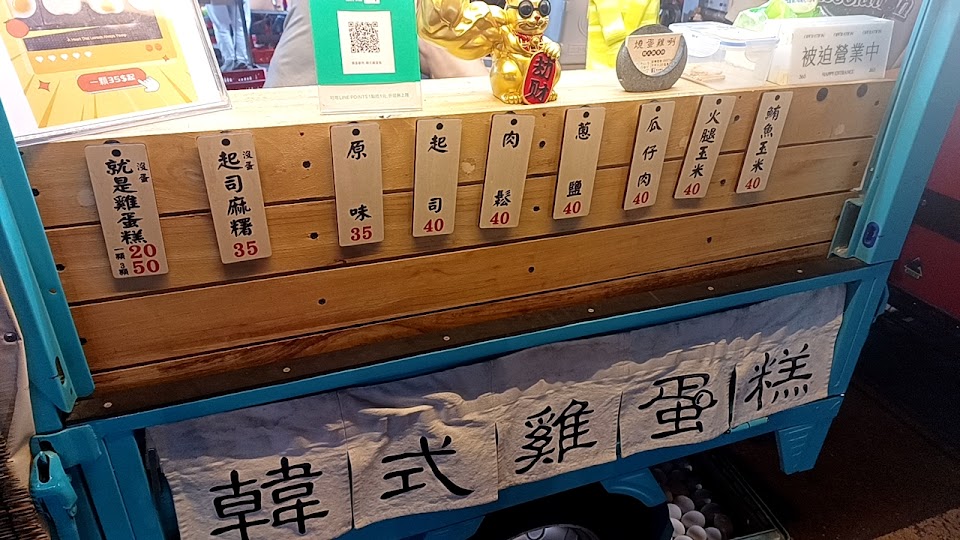 一顆35$起
燒蛋雞糕
被迫營業中
招財
沒蛋
就是雞蛋糕
一顆 20
3顆 50
沒蛋
起司麻糬
35
原味
35
起司
40
肉鬆
40
蔥鹽
40
瓜仔肉
40
火腿玉米
40
鮪魚玉米
40
韓式雞蛋糕